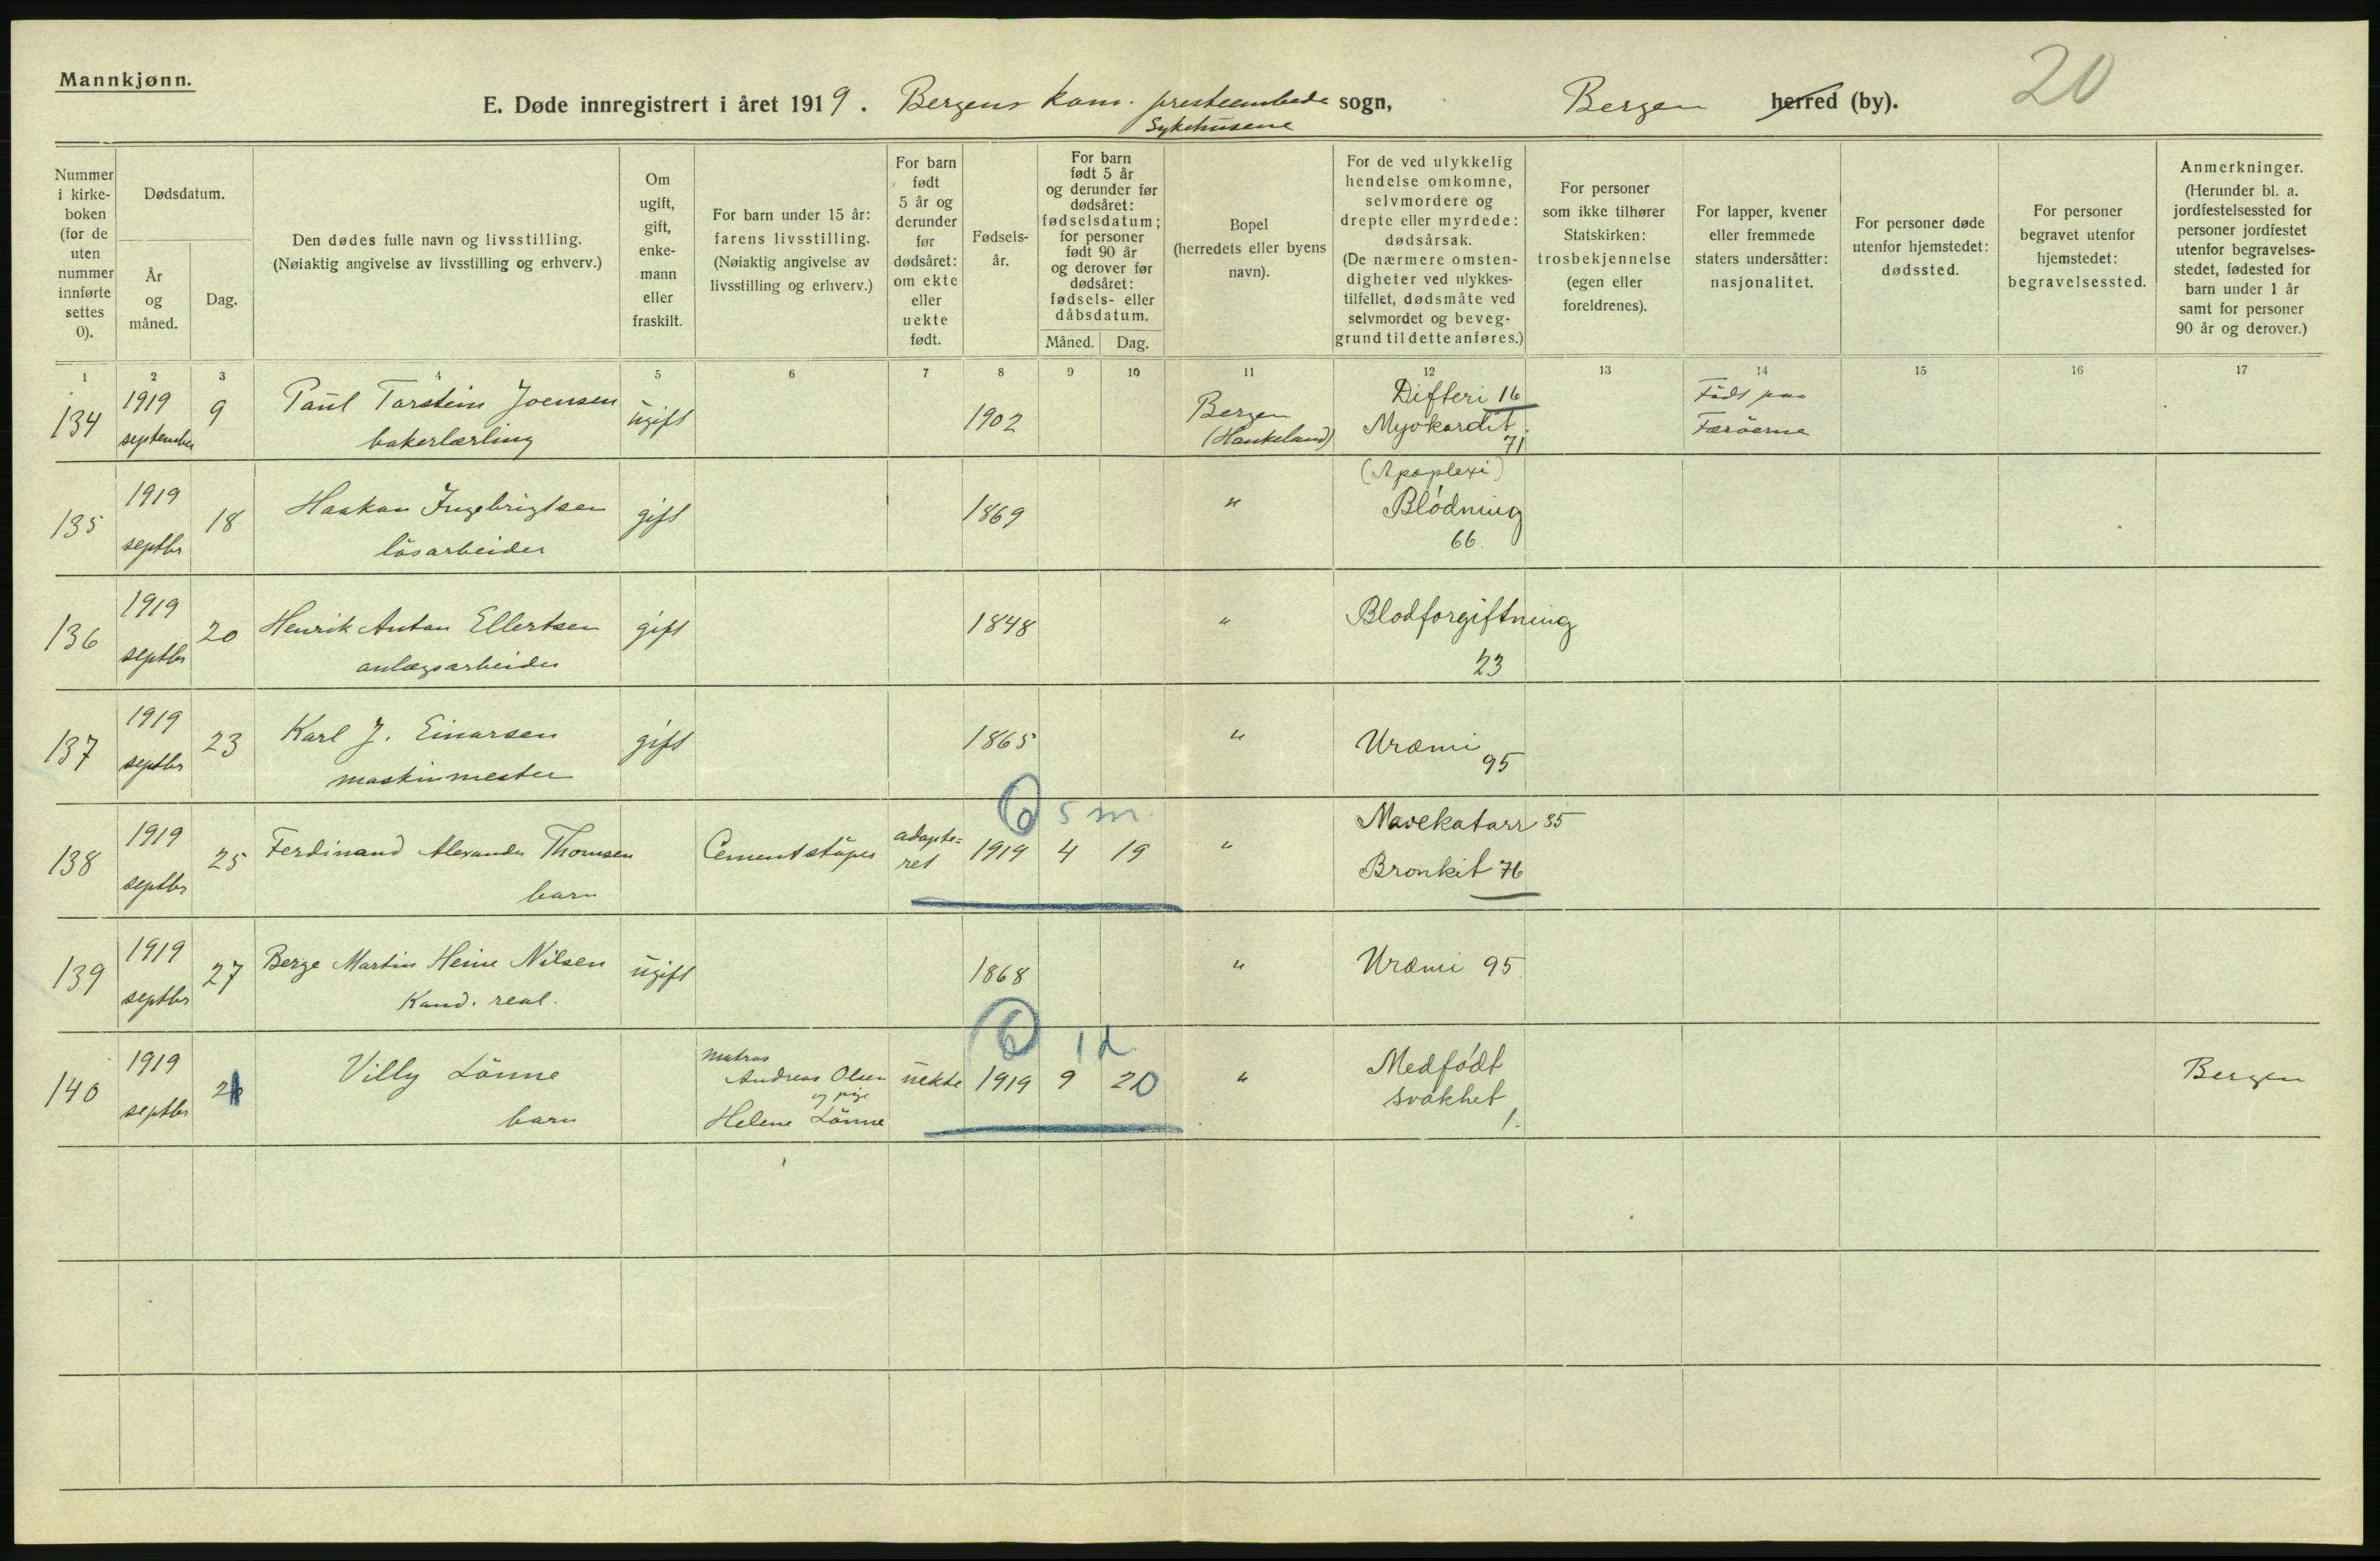 Mannkjønn.
20
E. Døde innregistrert i året 1919. Bergens kom. presteembede sogn, Bergen herred (by).
Sykehusene
Nummer i kirke-boken (for de uten nummer innførte settes 0).
Dødsdatum.
År og måned.
Dag.
Den dødes fulle navn og livsstilling.
(Nøiaktig angivelse av livsstilling og erhverv.)
Om ugift, gift, enke-mann eller fraskilt.
For barn under 15 år: farens livsstilling. (Nøiaktig angivelse av livsstilling og erhverv.)
For barn født 5 år og derunder før dødsåret: om ekte eller uekte født.
Fødsels-år.
For barn født 5 år og derunder før dødsåret: fødselsdatum; for personer født 90 år og derover før dødsåret: fødsels- eller dåbsdatum.
Måned. Dag.
Bopel (herredets eller byens navn).
For de ved ulykkelig hendelse omkomne, selvmordere og drepte eller myrdede: dødsårsak. (De nærmere omsten-digheter ved ulykkes-tilfellet, dødsmåte ved selvmordet og beveg-grund til dette anføres.)
For personer som ikke tilhører Statskirken: trosbekjennelse (egen eller foreldrenes).
For lapper, kvener eller fremmede staters undersåtter: nasjonalitet.
For personer døde utenfor hjemstedet: dødssted.
For personer begravet utenfor hjemstedet: begravelsessted.
Anmerkninger. (Herunder bl. a. jordfestelsessted for personer jordfestet utenfor begravelses-stedet, fødested for barn under 1 år samt for personer 90 år og derover.)
1 2 3 4 5 6 7 8 9 10 11 12 13 14 15 16 17
134 1919 september 9 Paul Torstein Joensen bakerlærling ugift 1902 Bergen (Haukeland) Difteri 16 Myokardit. 71 Född paa Færöerne
135 1919 septbr 18 Haakon Ingebrigtsen lösarbeider gift 1869 " (Apoplexi) Blødning 66.
136 1919 septbr 20 Henrik Anton Ellertsen anlægsarbeider gift 1848 " Blodforgiftning 23
137 1919 septbr 23 Karl J. Einarsen maskinmester gift 1865 " Uræmi 95
6 5 m.
138 1919 septbr 25 Ferdinand Alexander Thomsen barn Cementstöper adopte=ret 1919 4 19 " Mavekatarr 35 Bronkit 76
139 1919 septbr 27 Berge Martin Heine Nilsen Kand. real. ugift 1868 " Uræmi 95
6 1 d.
140 1919 septbr 21 Villy Lönne barn Matros Andreas Olsen og pige Helene Lönne uekte 1919 9 20 " Medfødt svakhet 1. Bergen